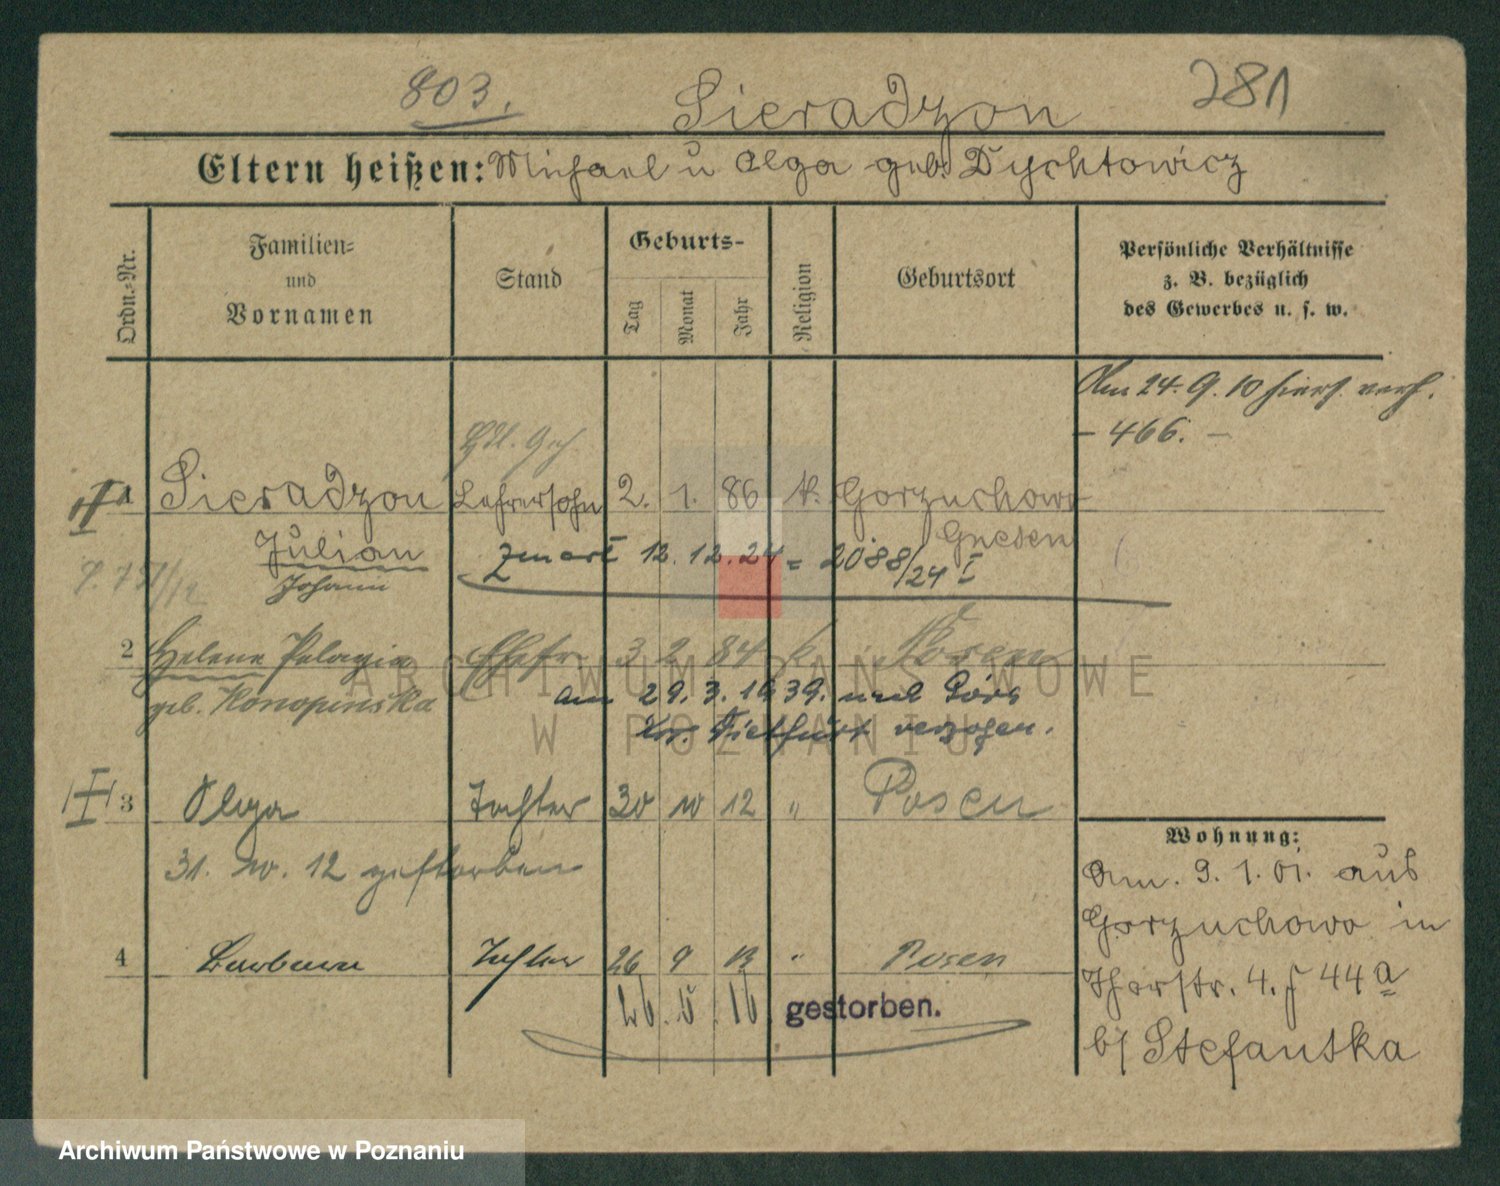 803.
Sieradzon
281
Eltern heißen: Michael u Olga geb. Dychtowicz
Ordn.-Nr.
Familien-
und
Vornamen
Stand
Geburts-
Tag
Monat
Jahr
Religion
Geburtsort
Persönliche Verhältnisse
z. B. bezüglich
des Gewerbes u. s. w.
Am 24. 9. 10 hiers. verh.
- 466. -
1 Sieradzon Lehrersohn 2. 1. 86 k. Gorzuchowo
Gnesen
Julian
Johann
12.12.24 = 2088/24 I
2 Helene Pelagia Ehefr 3 2 84 k Posen
geb. Konopinska
am 29. 3. 1939. nach
verzogen.
3 Olga Tochter 30 10 12 " Posen
31. 10. 12 gestorben
4 Barbara Tochter 26 9 13 " Posen
26. 5. 16 gestorben.
Wohnung:
Am. 9. 1. 01. aus
Gorzuchowo in
Thorstr. 4. J 44a
b/ Stefanska
ARCHIWUM PAŃSTWOWE
W POZNANIU
Archiwum Państwowe w Poznaniu